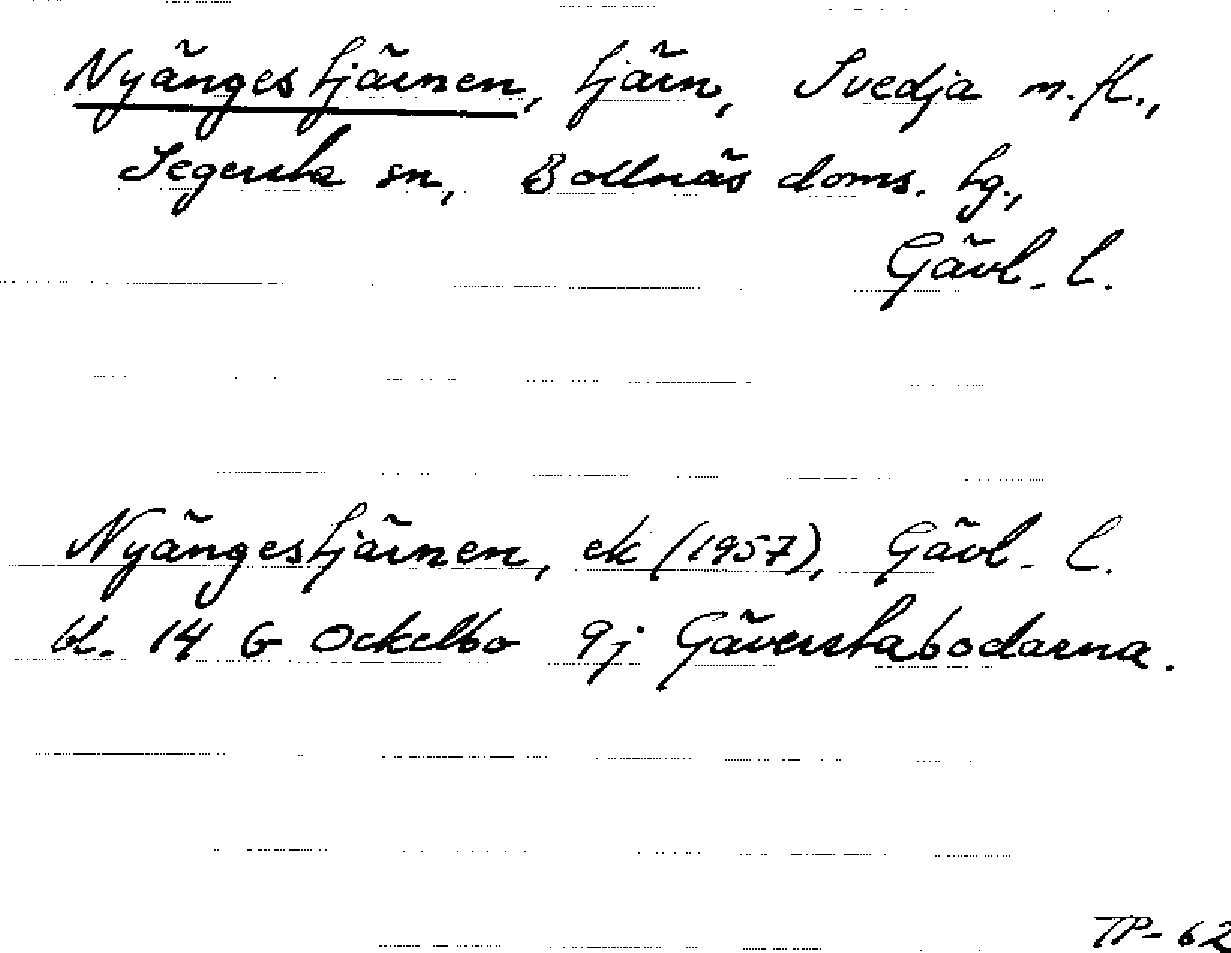 Nyängestjärnen, tjärn, Svedja m.fl.,
Segersta sn, Bollnäs doms. tg.,
Gävl. l.
Nyängestjärnen, ek (1957), Gävl. l.
bl. 14 G Ockelbo 9j Gäverstabodarna.
TP-62